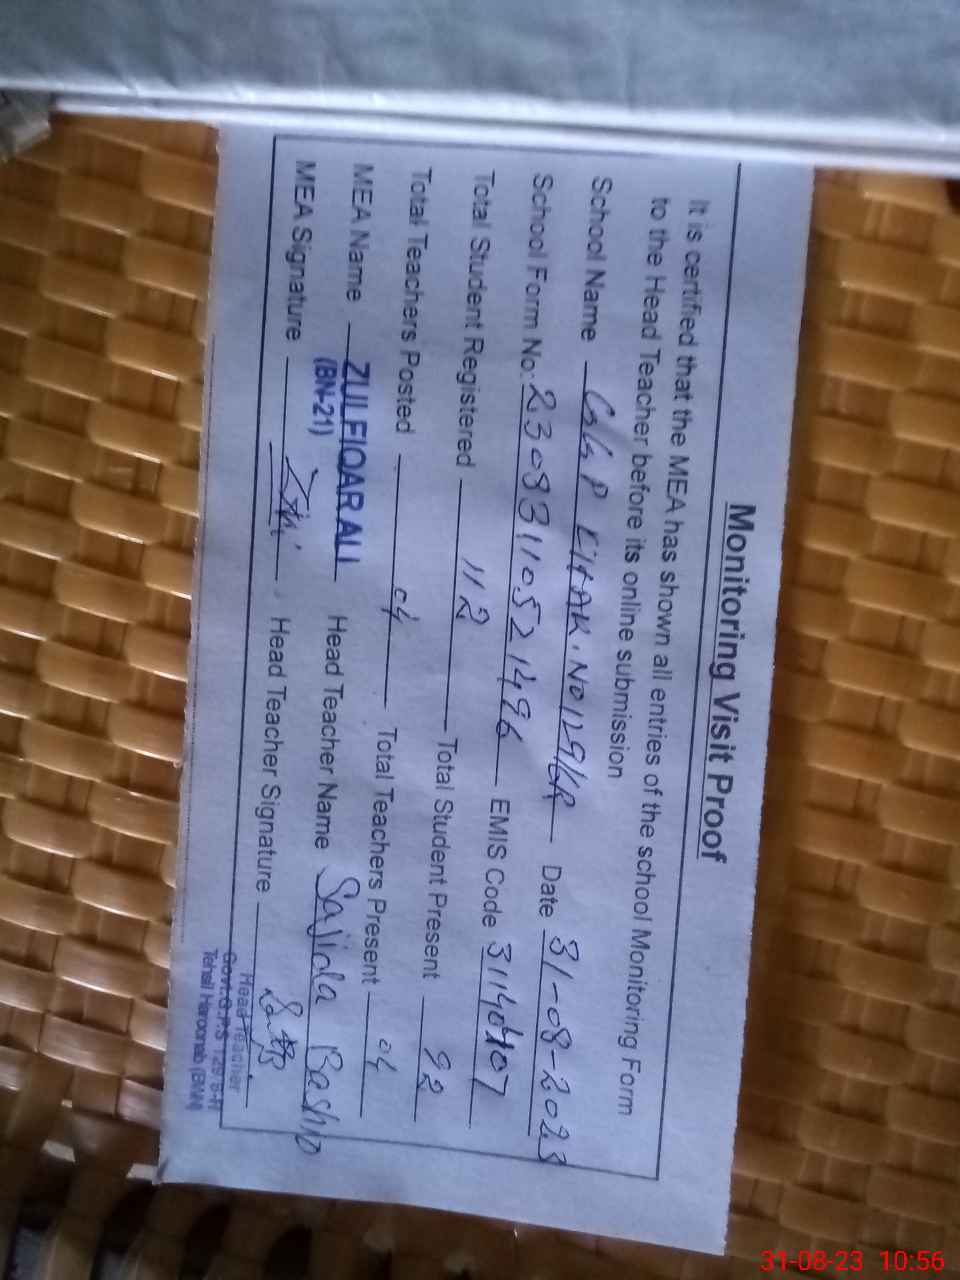 Monitoring Visit Proof
It is certified that the MEA has shown all entries of the school Monitoring Form
to the Head Teacher before its online submission
School Name GGP No 129/6R Date 31-08-2023
School Form No: 23083110521496 EMIS Code
Total Student Registered 112 Total Student Present 92
Total Teachers Posted 04 Total Teachers Present 04
MEA Name ZULFIQAR ALI Head Teacher Name Sajida Bashir
(BN-21)
MEA Signature Head Teacher Signature
Head Teacher
Govt. G.P.S 129/6-R
Tehsil Haroonabad (BWN)
31-08-23 10:56